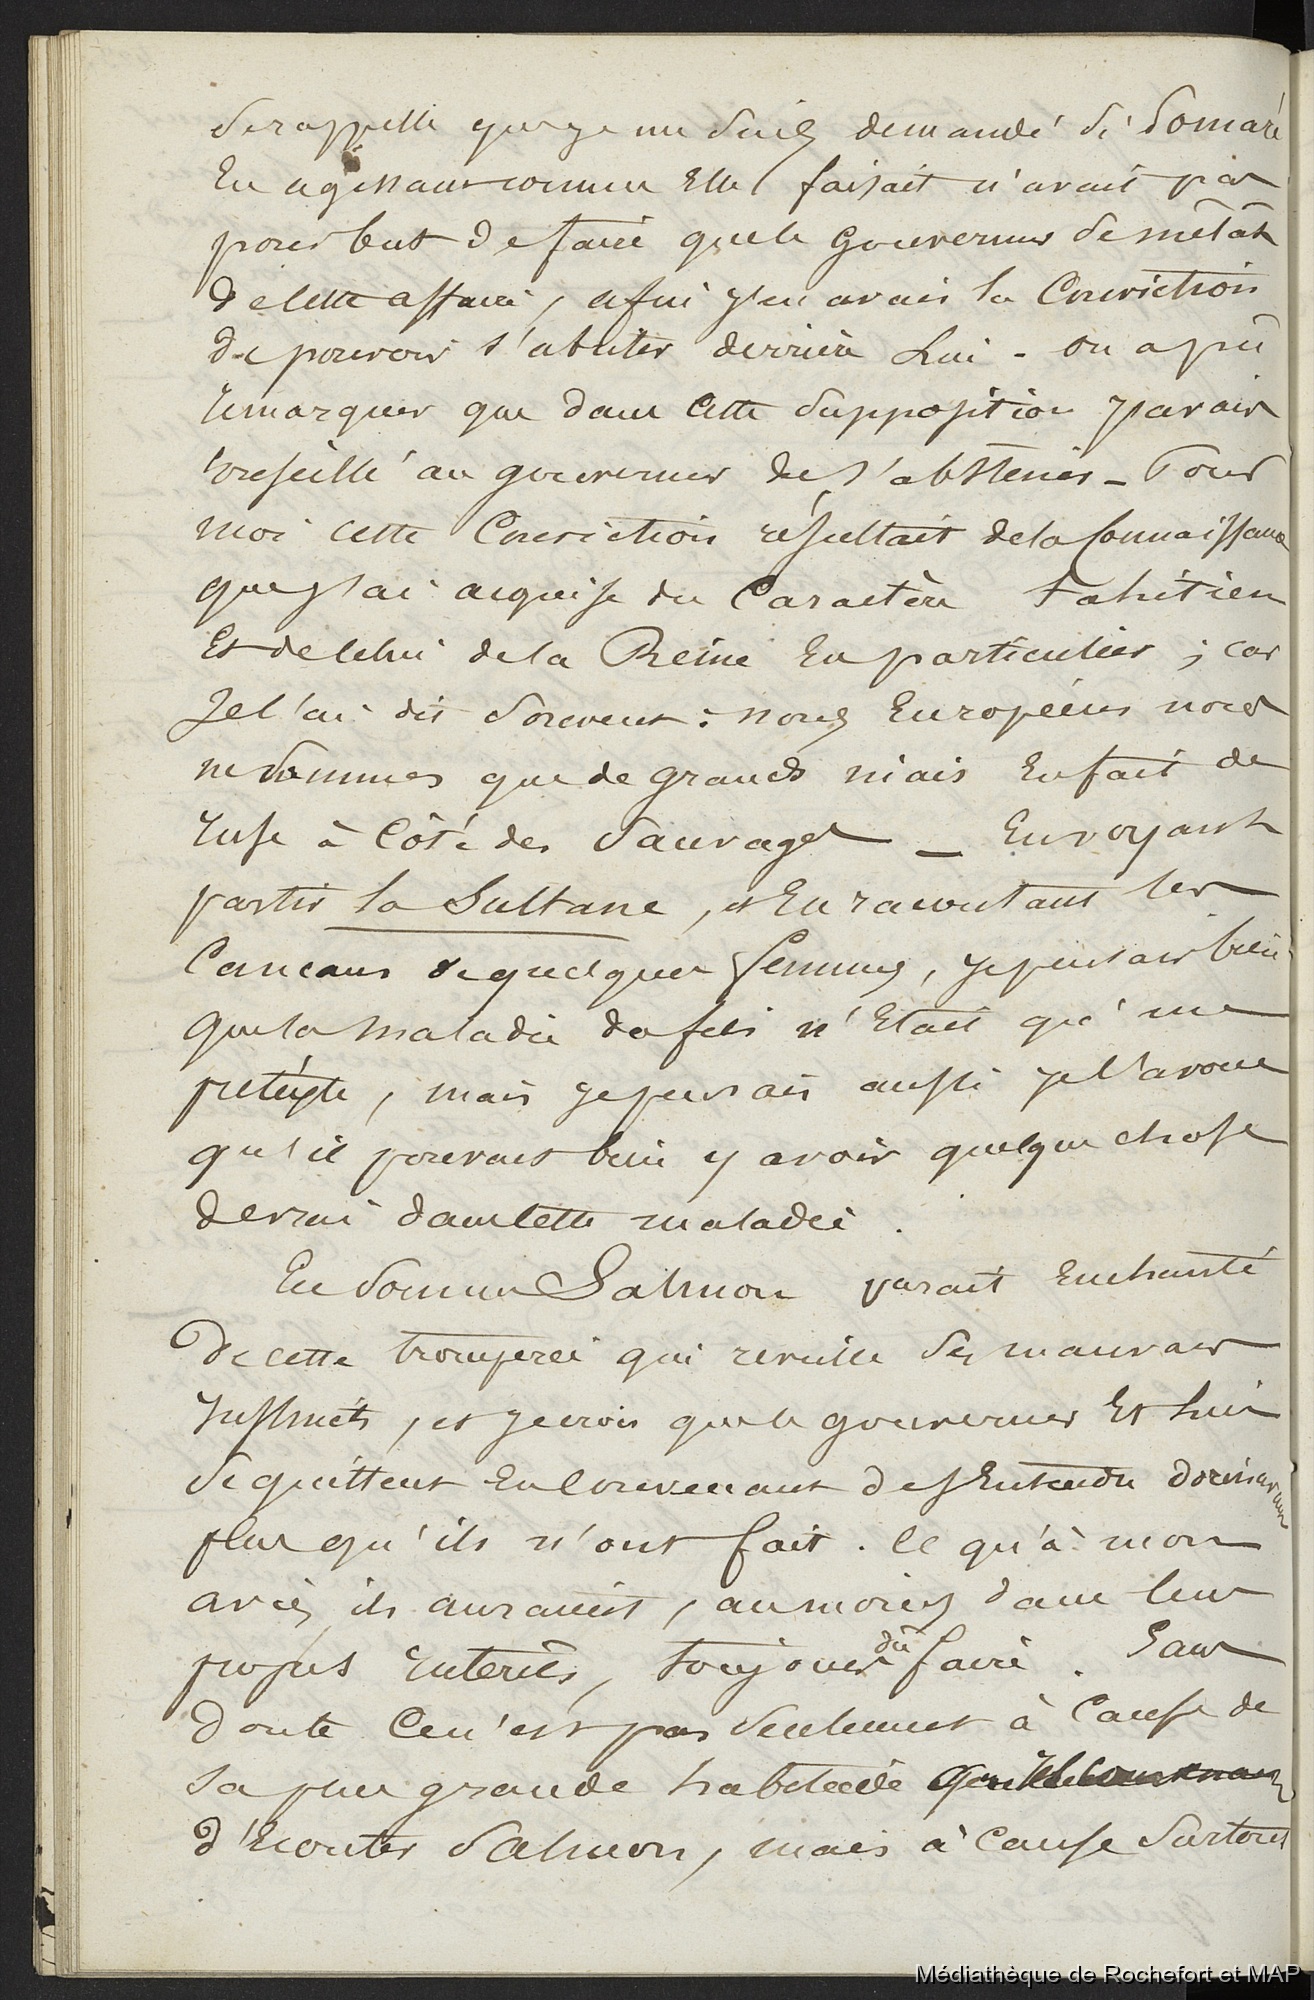 se rappelle que je me suis demandé si Pomaré
En agissant comme Elle faisait n'avait pas
pour but de faire que le Gouverneur se mêlât
de cette affaire, afin j'en avais la Conviction
de pouvoir s'abriter derrière Lui - on a pu
remarquer que dans cette supposition j'avais
conseillé au gouverneur de s'abstenir - Pour
moi cette Conviction résultait de la Connaissance
que j'ai acquise du Caractère tahitien
Et de celui de la Reine En particulier ; car
Je l'ai dit souvent : nous Européens nous
ne sommes que de grands niais En fait de
ruse à Côté des sauvages _ En voyant
partir la Sultane, et En racontant les
Cancans de quelques femmes, je pensais bien
que la maladie du fils n'Etait qu'un
prétexte, mais je pensais aussi je l'avoue
qu'il pouvait bien y avoir quelque chose
de vrai dans cette maladie.
En somme Salmon parait Enchanté
de cette tromperie qui reveille ses mauvais
Instincts, et je crois que le gouverneur Et lui
se quittent En Convenant de s'Entendre dorénavant
plus qu'ils n'ont fait. Ce qu'à mon
avis ils auraient, au moins dans leur
propres Interêts, toujours dû faire. Sans
doute Ce n'est pas seulement à Cause de
sa plus grande habitude
d'Ecouter Salmon, mais à Cause surtout
Médiathèque de Rochefort et MAP